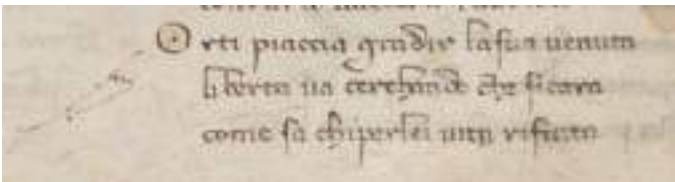 Orti piaccia gradir la sua uenuta
liberta ua cerchando che si cara
come sa chi per lei uita rifiuta